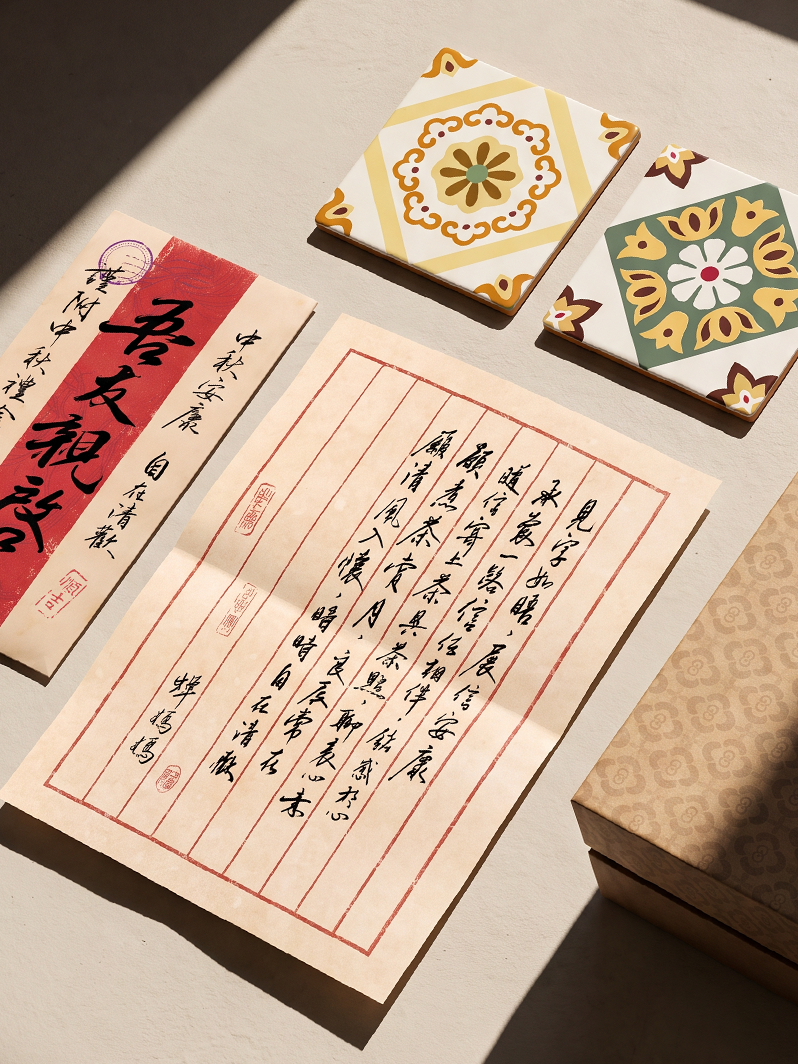 中秋安康 自在清歡
吾友親啓
謹附中秋禮
見字如晤，展信安康
承蒙一路信任相伴，銘感於心
隨信寄上茶具茶點，聊表心
願煮茶賞月，良辰常在
願清風入懷，暗時自在清歡
媽媽